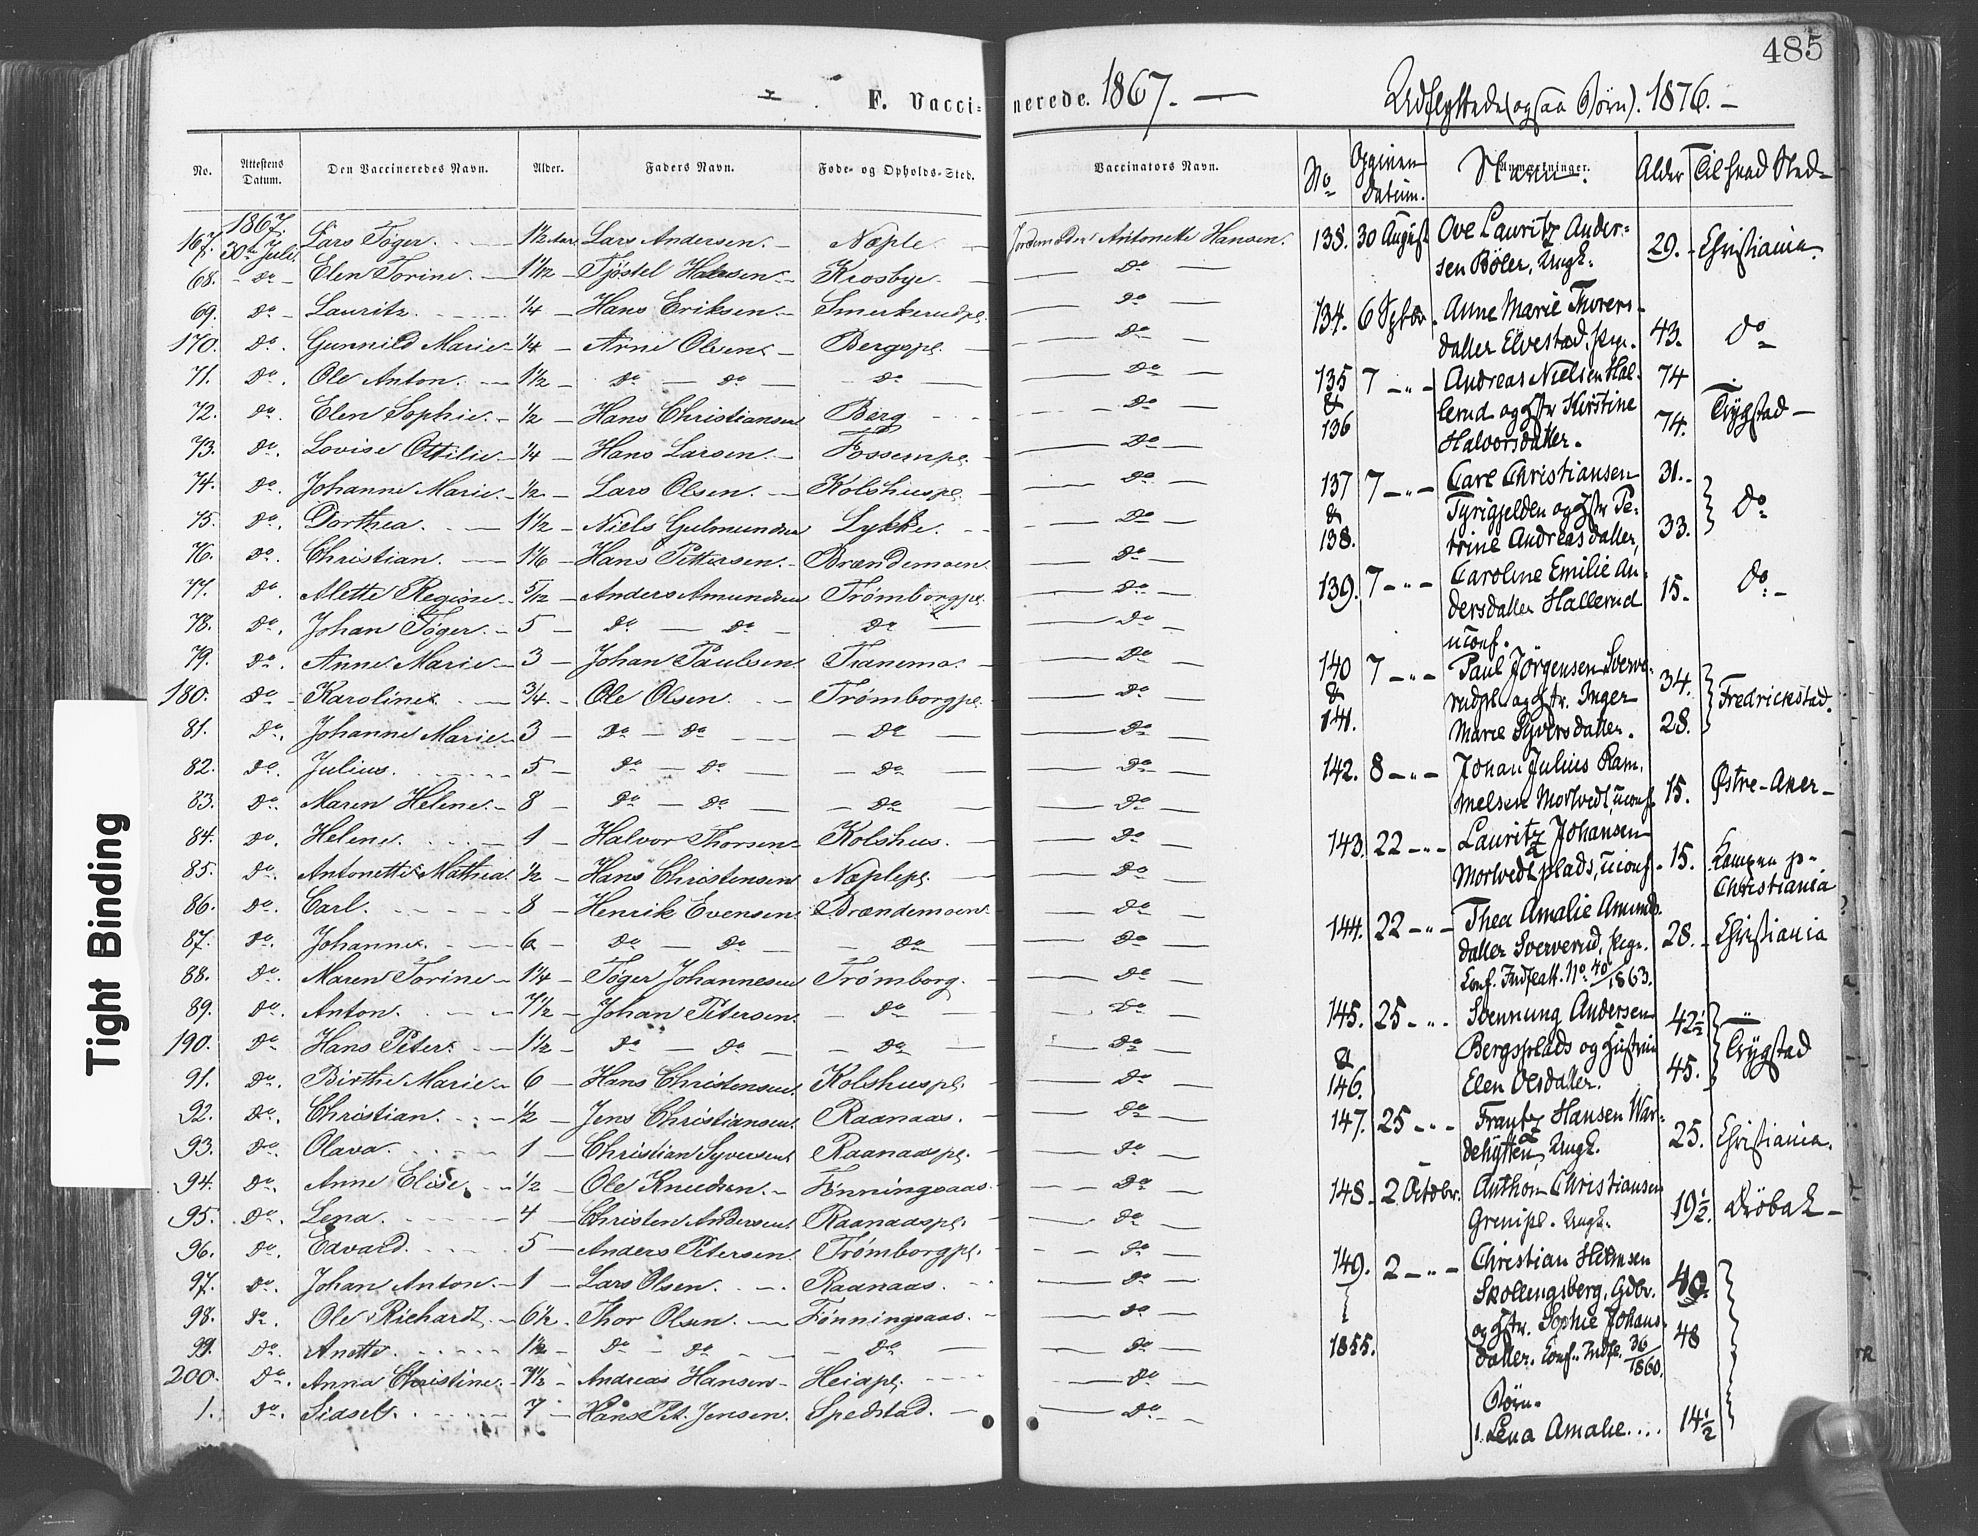 485
F. Vacci-
nerede. 1867. —
Udflyttede (ogsaa Børn). 1876. —
No. Attestens Datum. Den Vaccineredes Navn. Alder. Faders Navn. Føde- og Opholds-Sted.
Vaccinators Navn. Anmærkninger.
1867.
167. 30te Juli. Lars Tøger. 1½ Aar Lars Andersen. Næple. Jordemoder Antonette Hansen.
68. Do Elen Torine. 1 1/12 Tjøstel Hansen. Krosbye. Do
69. Do Lauritz. ¼ Hans Eriksen. Smerkerudpl. Do
170. Do. Gunnild Marie ¼ Arne Olsen. Bergspl. Do
71. Do. Ole Anton. 1½ Do Do Do Do
72. Do. Elen Sophie. ½ Hans Christiansen Berg Do
73. Do. Lovise Ottilie ¼ Hans Larsen. Fossempl. Do
74. Do. Johanne Marie. ½ Lars Olsen. Kolshuspl. Do
75. Do. Dorthea. 1½ Niels Gulmundsen Lykke. Do
76. Do. Christian. 1⅙ Hans Pettersen. Brændemoen. Do
77. Do. Alette Regine. 5/12 Anders Amundsen Trømborgpl. Do
78. Do. Johan Tøger. 5 Do Do Do Do
79. Do. Anne Marie 3 Johan Paulsen Tranemo. Do
180. Do Karoline. ¾ Ole Olsen. Trømborgpl. Do
81. Do. Johanne Marie 3 Do Do Do Do
82. Do. Julius. 5 Do Do Do Do
83. Do. Maren Helene. 8 Do Do Do Do
84. Do. Helene. 1 Halvor Thorsen Kolshus. Do
85. Do. Antonette Mathea. ½ Hans Christensen Næplepl. Do
86. Do. Carl. 8 Henrik Evensen Brændemoen. Do
87. Do. Johanne. 6 Do Do Do Do
88. Do. Maren Torine. 1¼ Tøger Johannesen Trømborg. Do
89. Do. Anton. 7½ Johan Petersen. Do Do
190. Do Hans Peter. 1½ Do Do Do Do
91. Do. Birthe Marie 6 Hans Christensen. Kolshuspl. Do
92. Do. Christian. ½ Jens Christiansen. Raanaas. Do
93. Do. Olava. 1 Christian Syversen Raanaaspl. Do
94. Do. Anne Elise. ½ Ole Knudsen. Fønningsaas. Do
95. Do. Lena. 4 Christen Andersen Raanaaspl. Do
96. Do. Edvard. 5 Anders Petersen. Trømborgpl. Do
97. Do. Johan Anton. 1 Lars Olsen. Raanaas. Do
98. Do. Ole Richard. 6½ Thor Olsen. Fønningsaas. Do
99. Do. Anette. 1½ Do Do Do Do
200. Do. Anna Christine. 7½ Andreas Hansen Heiapl. Do
1. Do. Sidsel. 7 Hans Pet. Jensen. Spedstad. Do
No Opgiven Datum. Navn. Alder Til hvad Sted
138. 30 August Ove Lauritz Ander-
sen Bøler, Ungk. 29. Christiania.
134. 6 Septbr. Anne Marie Thorers-
datter Elvestad, Pige. 43. Do
135 7 — " — Andreas Nielsen Hal- 74
& lerud og Hstr Kirstine Trygstad —
136 Halvorsdatter. 74.
137 7 — " — Carl Christiansen 31.
& Tyrigjelden og Hstr Pe- Do
138. trine Andreasdatter, 33.
139. 7 — " — Caroline Emilie An-
dersdatter Hallerud 15. Do
uconf.
140 7 — " — Paul Jørgensen Sverve- 34.
& rudpl. og Hstr. Inger Fredrickstad.
141. Marie Syversdatter. 28.
142. 8 — " — Johan Julius Ram-
melsen Mortvedt, uconf 15. Østre-Aker —
143. 22 — " — Lauritz Johansen
Mortvedtplads, uconf. 15. Kampen p.
Christiania
144. 22 — " — Thea Amalie Amunds-
datter Sververud, Pige. 28. Christiania
Conf. Indfl.att. No 40/1863.
145. 25 — " — Svennung Andersen 42½
& Bergsplads og Hustru Trygstad
146. Elen Olsdatter. 45.
147. 25 — " — Frantz Hansen War-
dehytten, Ungk. 25. Christiania.
148. 2 Octobr. Anthon Christiansen
Grenipl. Ungk. 19½. Drøbak —
149. 2 — " — Christian Hermsen
Skollengsberg, Gdbr. 40.
og Hstr. Sophie Johans-
1855. datter. Conf. Indfl. 36/1860. 48
Børn.
1. Lena Amalie.... 14½
Tight Binding